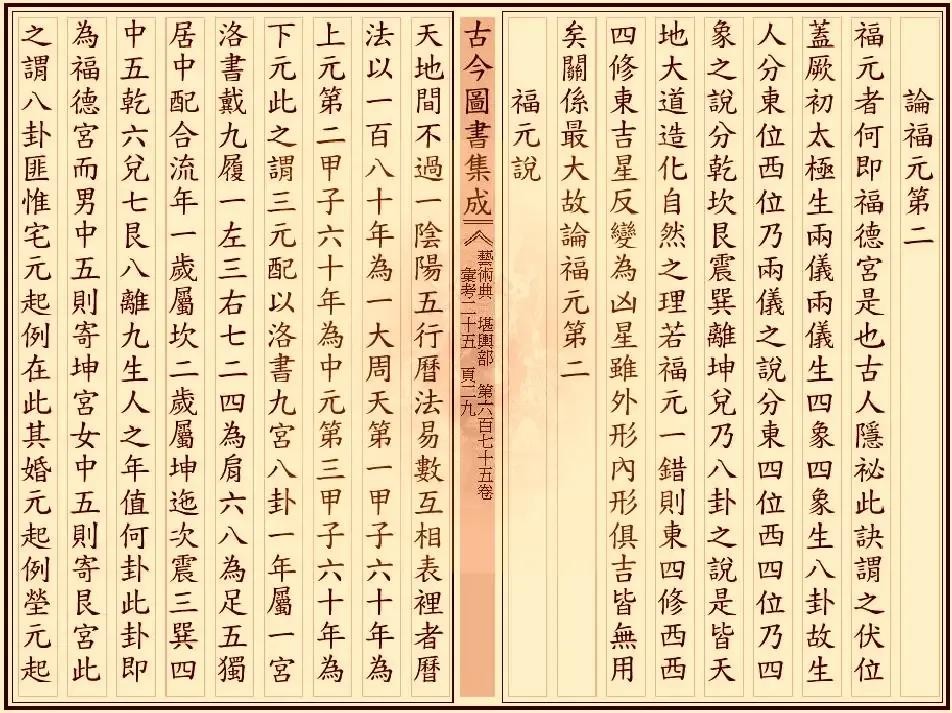 論福元第二
福元者何即福德宮是也古人隱祕此訣謂之伏位
蓋厥初太極生兩儀兩儀生四象四象生八卦故生
人分東位西位乃兩儀之說分東四位西四位乃四
象之說分乾坎艮震巽離坤兌乃八卦之說是皆天
地大道造化自然之理若福元一錯則東四修西西
四修東吉星反變為凶星雖外形內形俱吉皆無用
矣關係最大故論福元第二
福元說
古今圖書集成
藝術典 堪輿部 第六百七十五卷
彙考二十五 頁二九
天地間不過一陰陽五行曆法易數互相表裡者曆
法以一百八十年為一大周天第一甲子六十年為
上元第二甲子六十年為中元第三甲子六十年為
下元此之謂三元配以洛書九宮八卦一年屬一宮
洛書戴九履一左三右七二四為肩六八為足五獨
居中配合流年一歲屬坎二歲屬坤迤次震三巽四
中五乾六兌七艮八離九生人之年值何卦此卦即
為福德宮而男中五則寄坤宮女中五則寄艮宮此
之謂八卦匪惟宅元起例在此其婚元起例塋元起